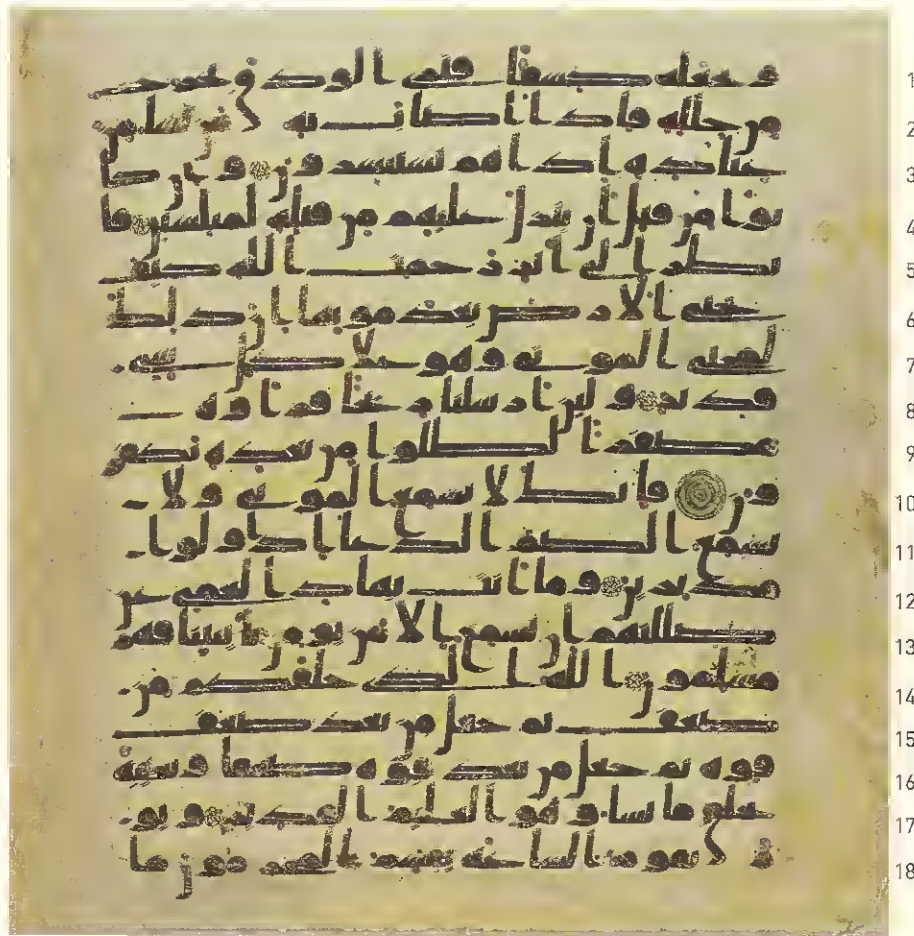 و يجعله كسفا فترى الودق يخرج 1
من خلله فاذا اصاب به من يشا من 2
عباده اذا هم يستبشرون و ان كا 3
نوا من قبل ان ينزل عليهم من قبله لمبلسين فا 4
نظر الى اثر رحمت الله كيف 5
يحي الارض بعد موتها ان ذلك 6
لمحي الموتى وهو على كل شي 7
قدير ولئن ارسلنا ريحا فراوه 8
مصفرا لظلوا من بعده يكفر 9
ون فانك لا تسمع الموتى ولا 10
تسمع الصم الدعا اذا ولوا 11
مدبرين وما انت بهاد العمي عن 12
ضللتهم ان تسمع الا من يومن بايتنا فهم 13
مسلمون الله الذي خلقكم من 14
ضعف ثم جعل من بعد ضعف 15
قوه ثم جعل من بعد قوه ضعفا وشيبه 16
يخلق ما يشا وهو العليم القدير ويو 17
م تقوم الساعه يقسم المجرمون ما 18